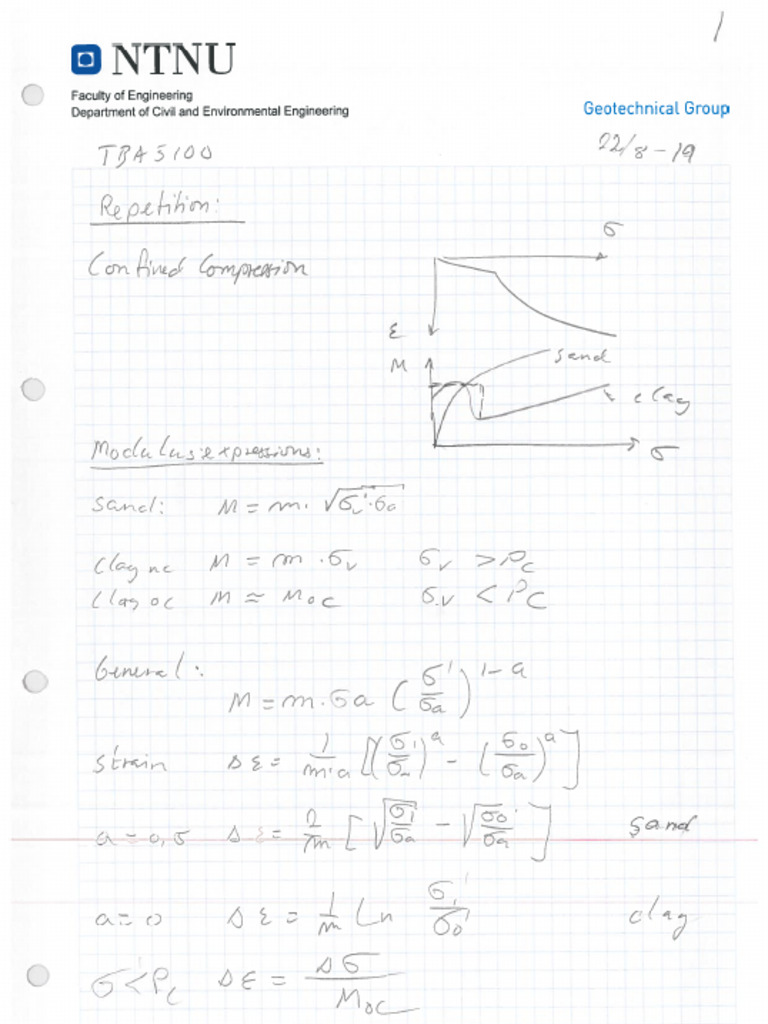 1
NTNU
Faculty of Engineering
Department of Civil and Environmental Engineering
Geotechnical Group
TBA5100
22/8-19
Repetition:
Confined compression
σ
ε
M
sand
clay
σ
Modulus expressions:
sand: M = m · √(σv' · σa)
clay nc M = m · σv σv > Pc
clay oc M ≈ Moc σv < Pc
General:
M = m · σa (σ'/σa)^(1-a)
strain Δε = 1/(m·a) [(σ1'/σa)^a - (σ0'/σa)^a]
a = 0,5 Δε = 2/m [√(σ1'/σa) - √(σ0'/σa)] sand
a = 0 Δε = 1/m Ln σ1'/σ0' clay
σ < Pc Δε = Δσ/Moc